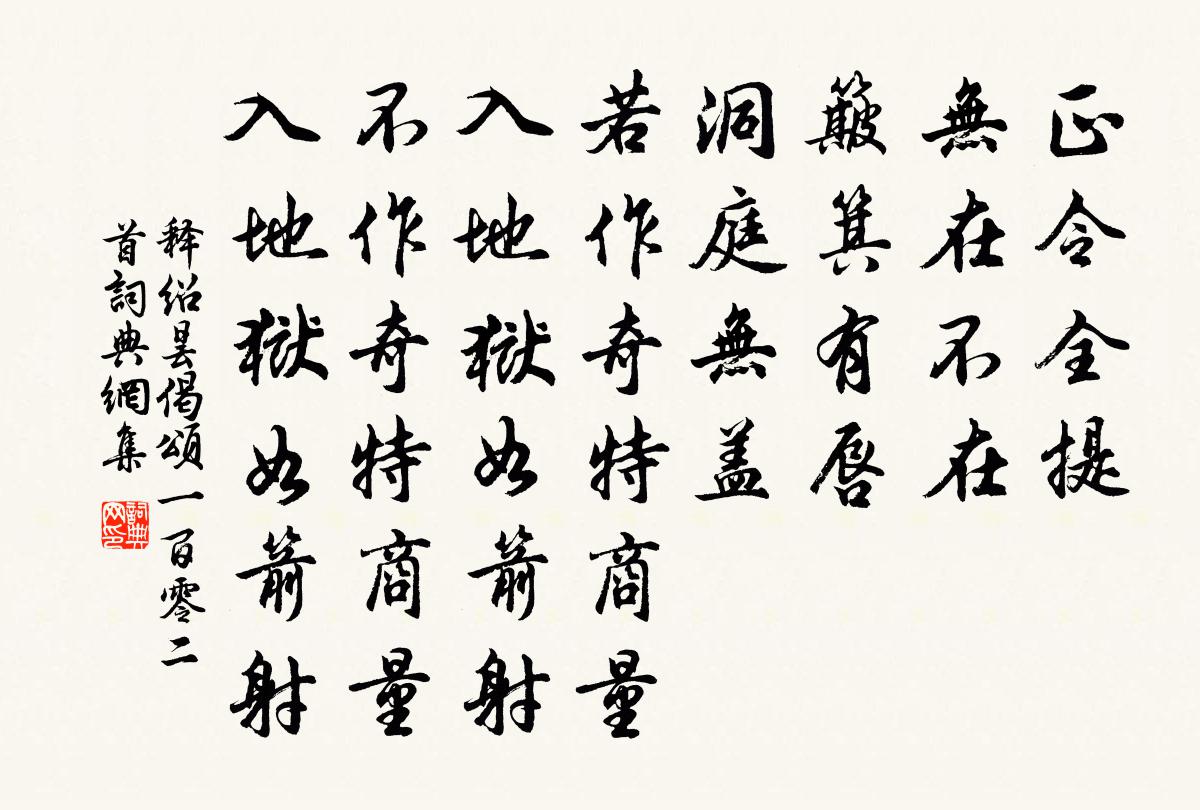 正令全提
無在不在
簸箕有唇
洞庭無盖
若作奇特商量
入地獄如箭射
不作奇特商量
入地獄如箭射
释绍昙偈頌一百零二
首詞典網集
詞典
网印